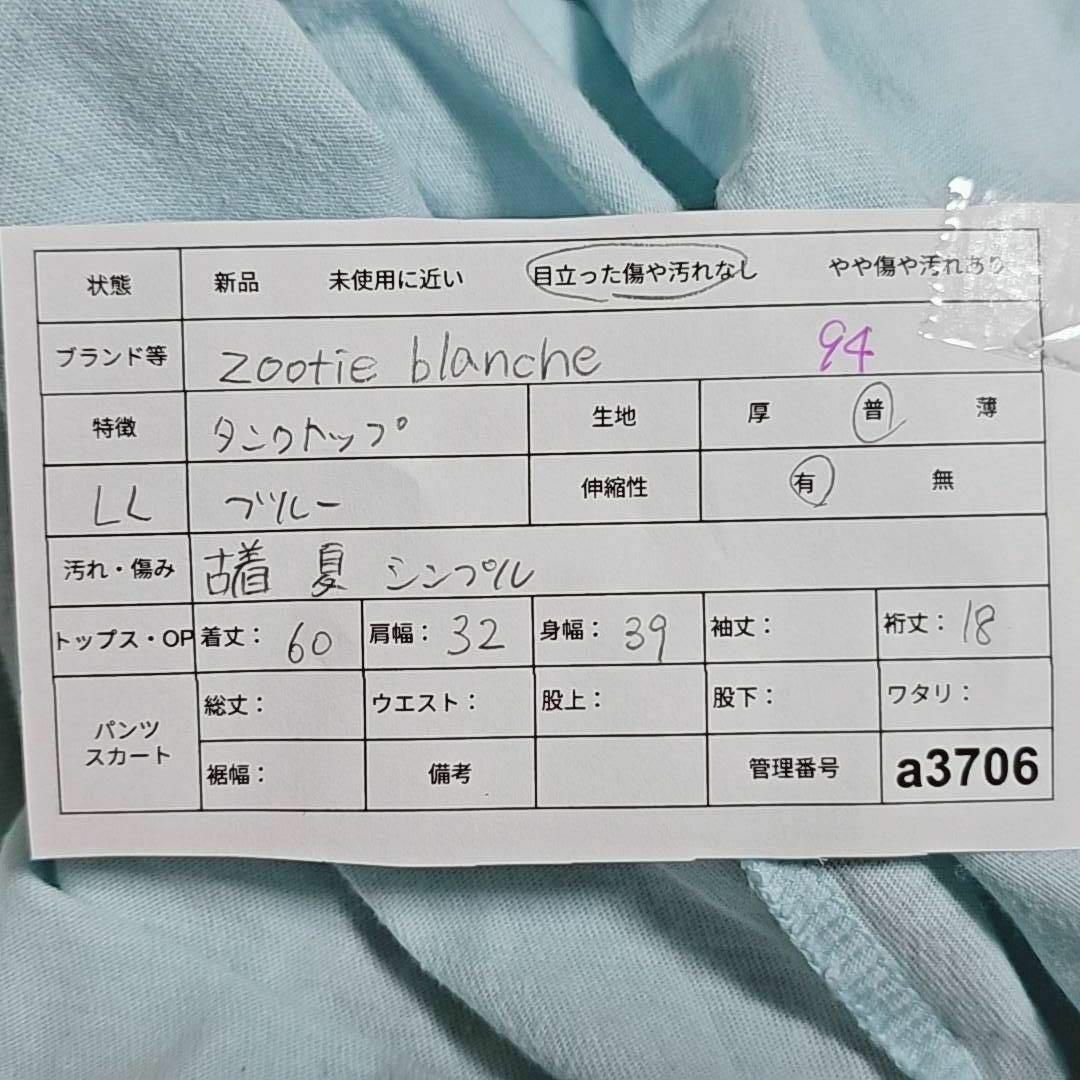 状態 新品 未使用に近い 目立った傷や汚れなし やや傷や汚れあり
ブランド等 zootie blanche 94
特徴 タンクトップ 生地 厚 普 薄
LL ブルー 伸縮性 有 無
汚れ・傷み 古着 夏 シンプル
トップス・OP 着丈： 60 肩幅： 32 身幅： 39 袖丈： 裄丈： 18
パンツ スカート 総丈： ウエスト： 股上： 股下： ワタリ：
裾幅： 備考 管理番号 a3706